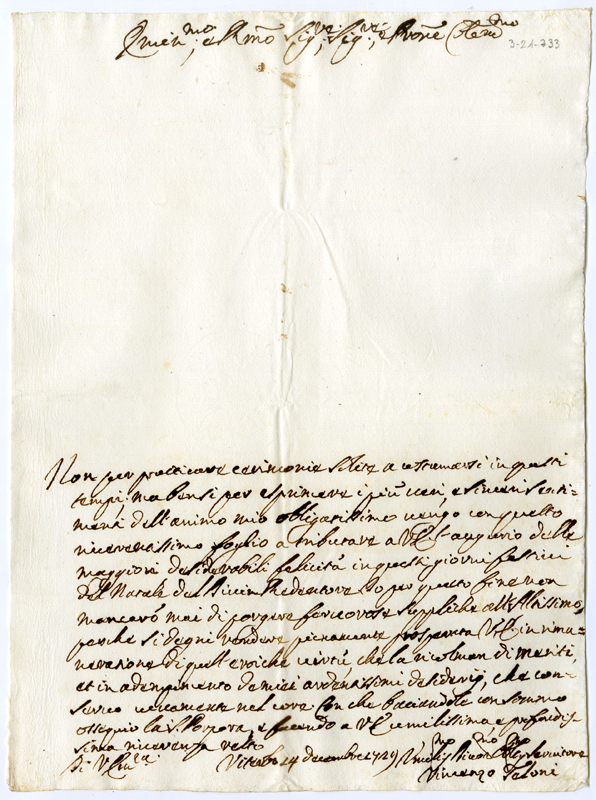 Emin.mo, e Rmo Sig.re, Sig.re, e Pron̄e Colen.mo
3-21-733
Non per pratticare cerimonie solite a costumarsi in questi
tempi; ma bensi per esprimere i più veri, e sinceri senti=
menti dell'animo mio obligatissimo vengo con questo
riverentissimo foglio a tributare a V.E. l'augurio delle
maggiori desiderabili felicità in questi giorni festivi
del Natale del Divin Redentore. Io per questo fine non
mancarò mai di porgere fervorose suppliche all'Altissimo,
perche si degni rendere pienamente prosperata V.E. in rimu=
nerazione di quell'eroiche virtù che la ricolman di meriti,
et in adempimento de miei ardentissimi desiderij, che con=
servo veramente nel core. Con che baciandole con sommo
ossequio la S. Porpora, e facendo a V.E. umilissima e profondis
sima riverenza resto
Di V. Em.za
Viterbo 24 decembre 1729
Umilis.mo Divot.mo Obl. Servitore
Vincenzo Paloni